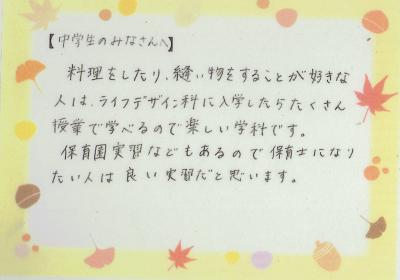 【中学生のみなさんへ】
料理をしたり、縫い物をすることが好きな
人は、ライフデザイン科に入学したらたくさん
授業で学べるので楽しい学科です。
保育園実習などもあるので保育士になり
たい人は良い実習だと思います。